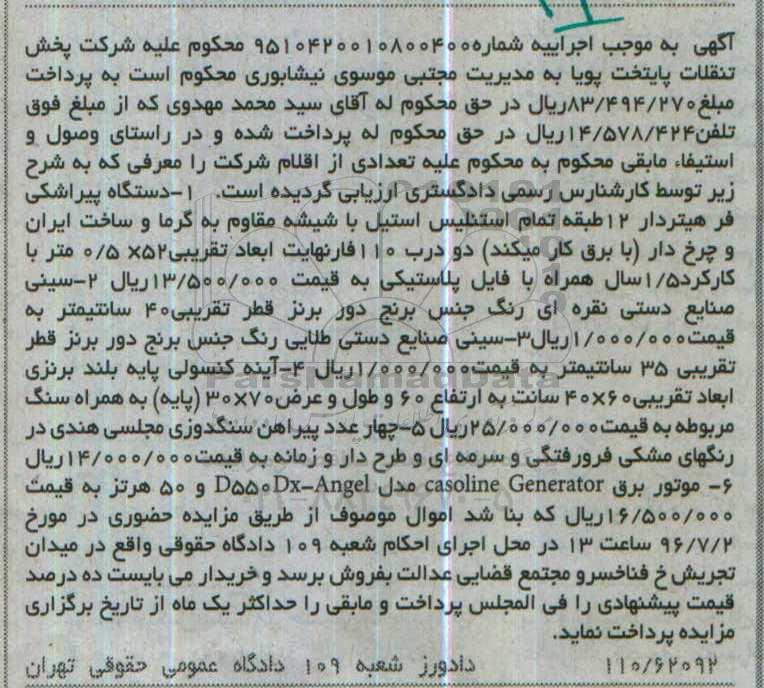 آگهی به موجب اجراییه شماره۹۵۱۰۴۲۰۰۱۰۸۰۰۴۰۰ محکوم علیه شرکت پخش
تنقلات پایتخت پویا به مدیریت مجتبی موسوی نیشابوری محکوم است به پرداخت
مبلغ۸۳/۴۹۴/۲۷۰ریال در حق محکوم له آقای سید محمد مهدوی که از مبلغ فوق
تلفن۱۴/۵۷۸/۴۲۴ریال در حق محکوم له پرداخت شده و در راستای وصول و
استیفاء مابقی محکوم به محکوم علیه تعدادی از اقلام شرکت را معرفی که به شرح
زیر توسط کارشنارس رسمی دادگستری ارزیابی گردیده است. ۱-دستگاه پیراشکی
فر هیتردار ۱۲طبقه تمام استنلیس استیل با شیشه مقاوم به گرما و ساخت ایران
و چرخ دار (با برق کار میکند) دو درب ۱۱۰فارنهایت ابعاد تقریبی۵۲× ۰/۵ متر با
کارکرد۱/۵سال همراه با فایل پلاستیکی به قیمت ۱۳/۵۰۰/۰۰۰ریال ۲-سینی
صنایع دستی نقره ای رنگ جنس برنج دور برنز قطر تقریبی۴۰ سانتیمتر به
قیمت۱/۰۰۰/۰۰۰ریال۳-سینی صنایع دستی طلایی رنگ جنس برنج دور برنز قطر
تقریبی ۳۵ سانتیمتر به قیمت۱/۰۰۰/۰۰۰ریال ۴-آینه کنسولی پایه بلند برنزی
ابعاد تقریبی۶۰×۴۰ سانت به ارتفاع ۶۰ و طول و عرض۷۰×۳۰ (پایه) به همراه سنگ
مربوطه به قیمت۲۵/۰۰۰/۰۰۰ریال ۵-چهار عدد پیراهن سنگدوزی مجلسی هندی در
رنگهای مشکی فرورفتگی و سرمه ای و طرح دار و زمانه به قیمت۱۴/۰۰۰/۰۰۰ریال
۶- موتور برق casoline Generator مدل D۵۵۰Dx-Angel و ۵۰ هرتز به قیمت
۱۶/۵۰۰/۰۰۰ریال که بنا شد اموال موصوف از طریق مزایده حضوری در مورخ
۹۶/۷/۲ ساعت ۱۳ در محل اجرای احکام شعبه ۱۰۹ دادگاه حقوقی واقع در میدان
تجریش خ فناخسرو مجتمع قضایی عدالت بفروش برسد و خریدار می بایست ده درصد
قیمت پیشنهادی را فی المجلس پرداخت و مابقی را حداکثر یک ماه از تاریخ برگزاری
مزایده پرداخت نماید.
۱۱۰/۶۲۰۹۲ دادورز شعبه ۱۰۹ دادگاه عمومی حقوقی تهران
ParsNamadData